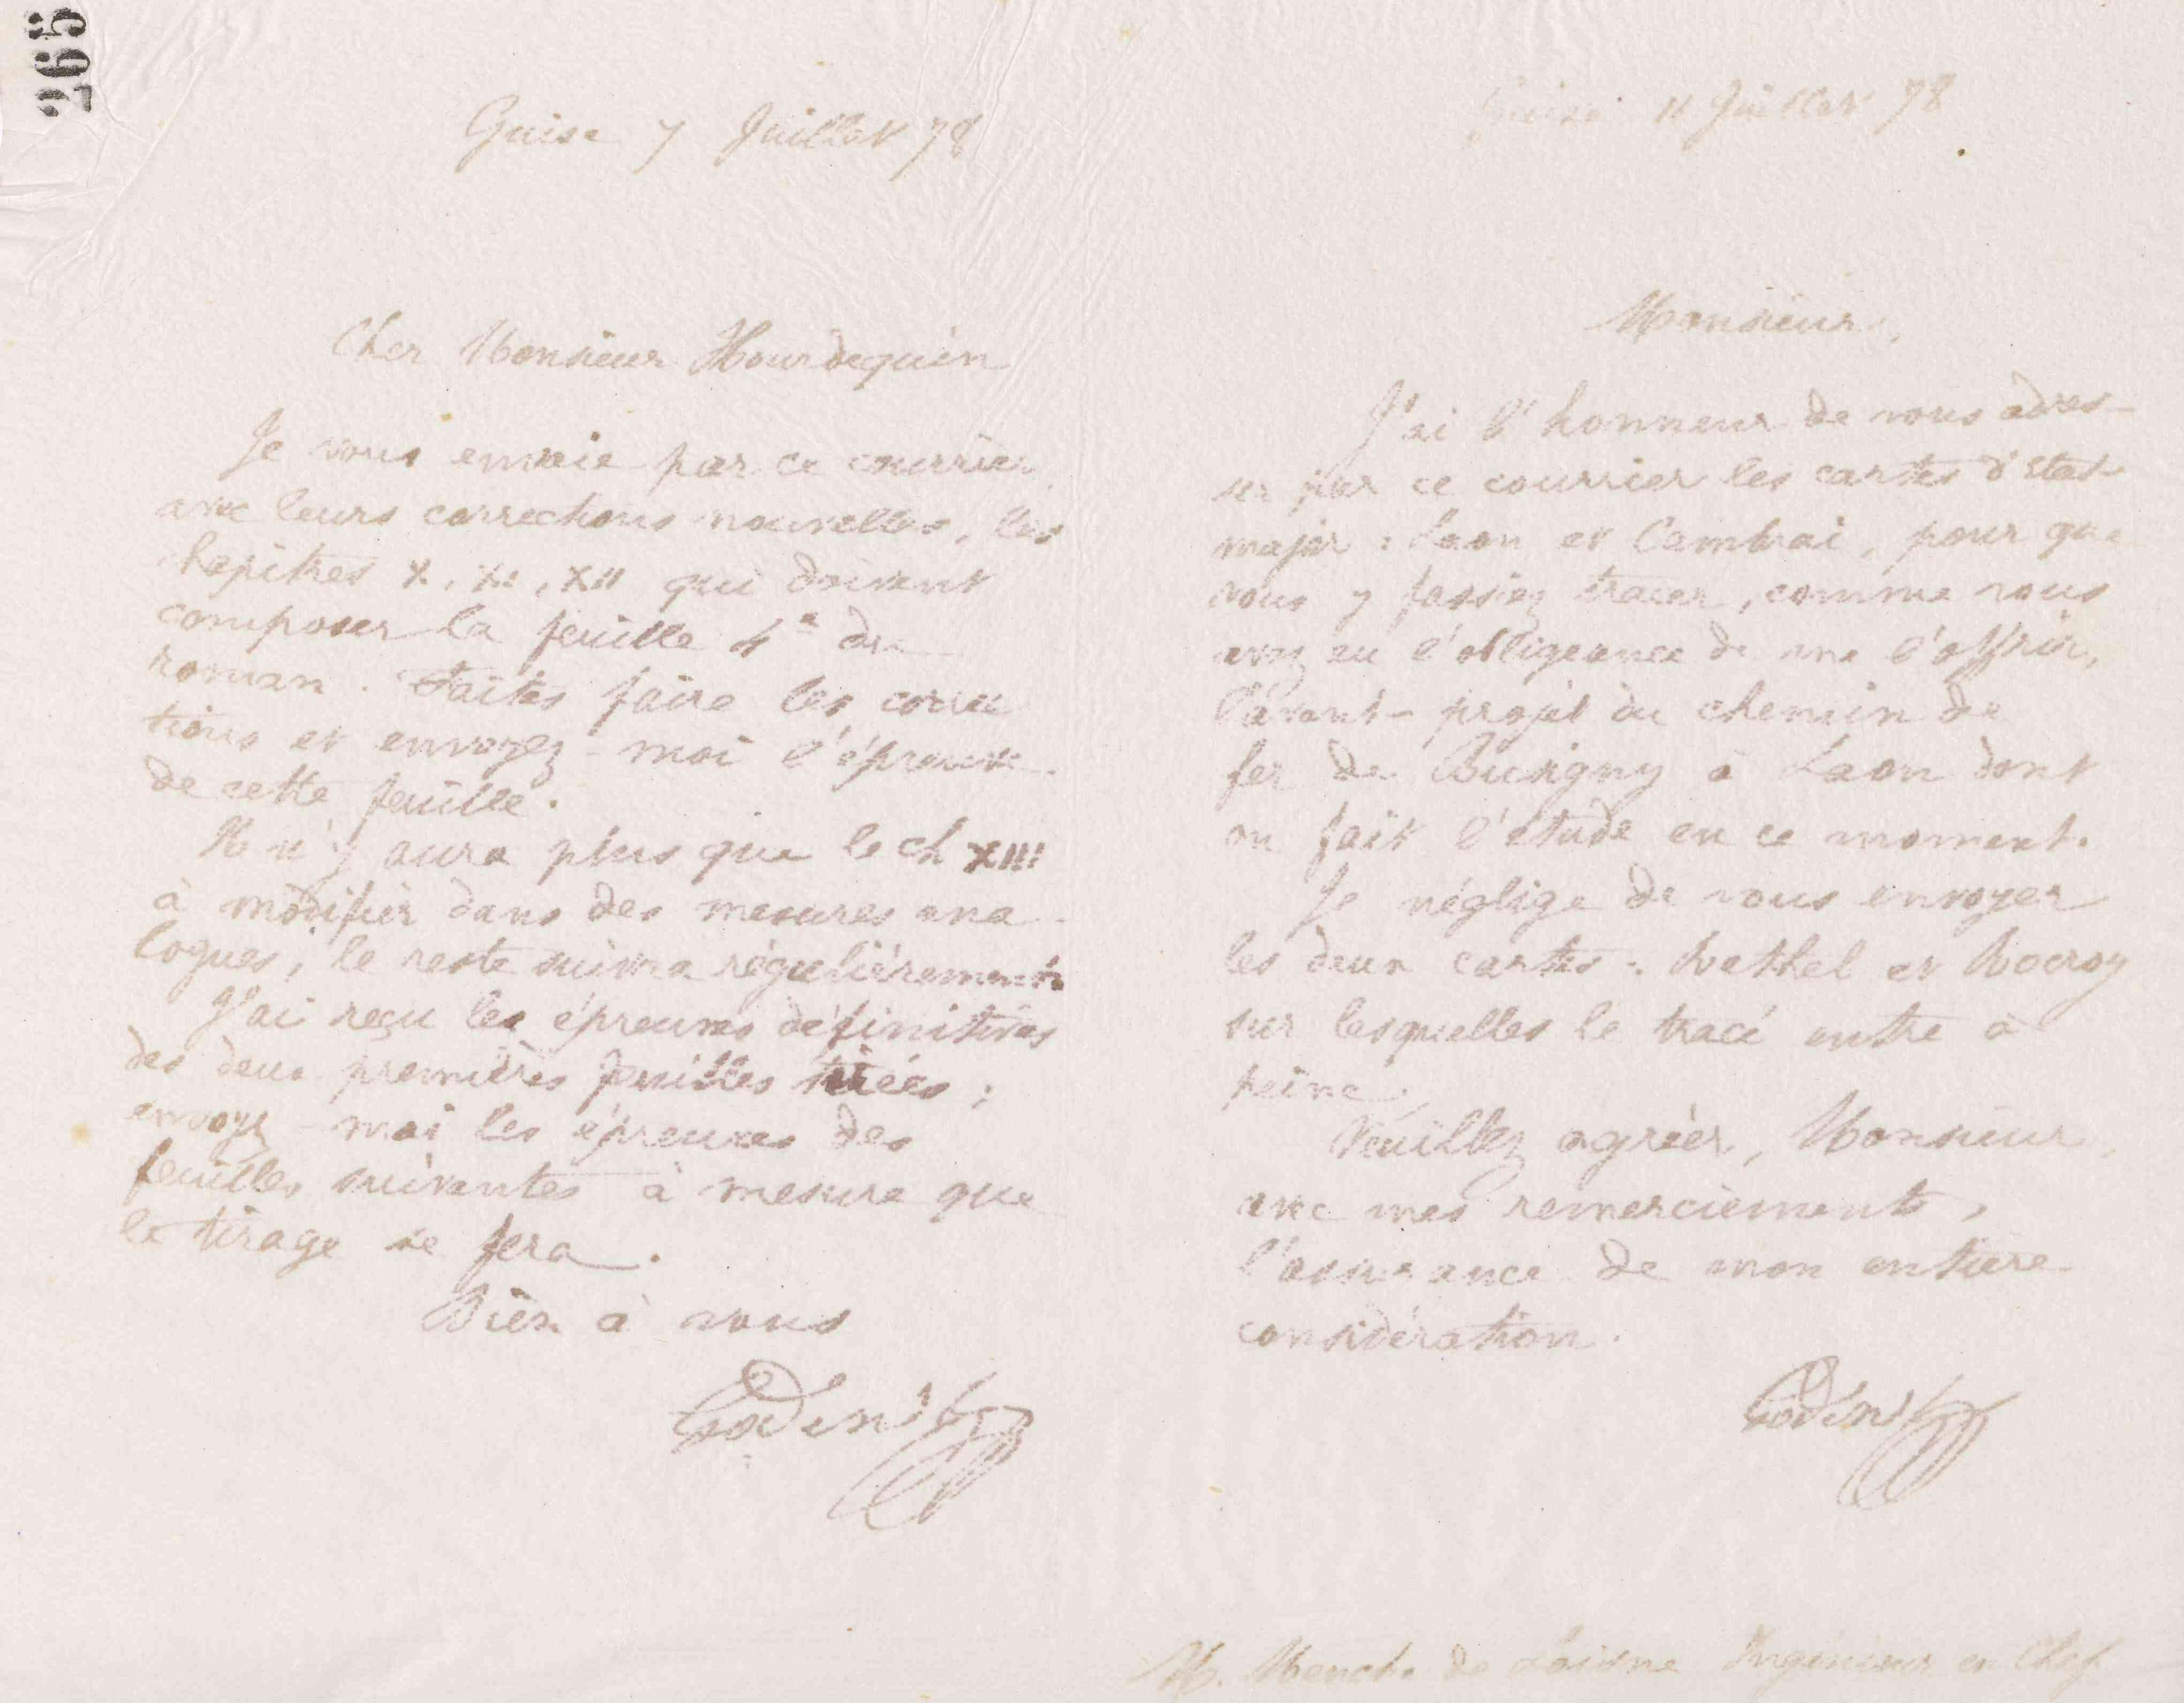 265
Guise 7 Juillet 78
Cher Monsieur Hourdequin
Je vous envoie par ce courrier
avec leurs corrections nouvelles, les
chapitres X, XI, XII qui doivent
composer la feuille 4e du
roman. Faites faire les correc
tions et envoyez-moi l'épreuve
de cette feuille.
Il n'y aura plus que le ch XIII
à modifier dans des mesures ana-
logues, le reste suivra régulièrement.
J'ai reçu les épreuves définitives
des deux premières feuilles tirées;
envoyez-moi les épreuves des
feuilles suivantes à mesure que
le tirage se fera.
Bien à vous
Godin
Guise 11 Juillet 78
Monsieur,
J'ai l'honneur de vous adres-
ser par ce courrier les cartes d'état-
major: Laon et Cambrai, pour que
vous y fassiez tracer, comme vous
avez eu l'obligeance de me l'offrir,
l'avant-projet du chemin de
fer de Busigny à Laon dont
on fait l'étude en ce moment.
Je néglige de vous envoyer
les deux cartes: Rethel et Rocroy
sur lesquelles le tracé entre à
peine.
Veuillez agréer, Monsieur,
avec mes remerciements,
l'assurance de mon entière
considération.
Godin
M. Menche de Loisne Ingénieur en Chef